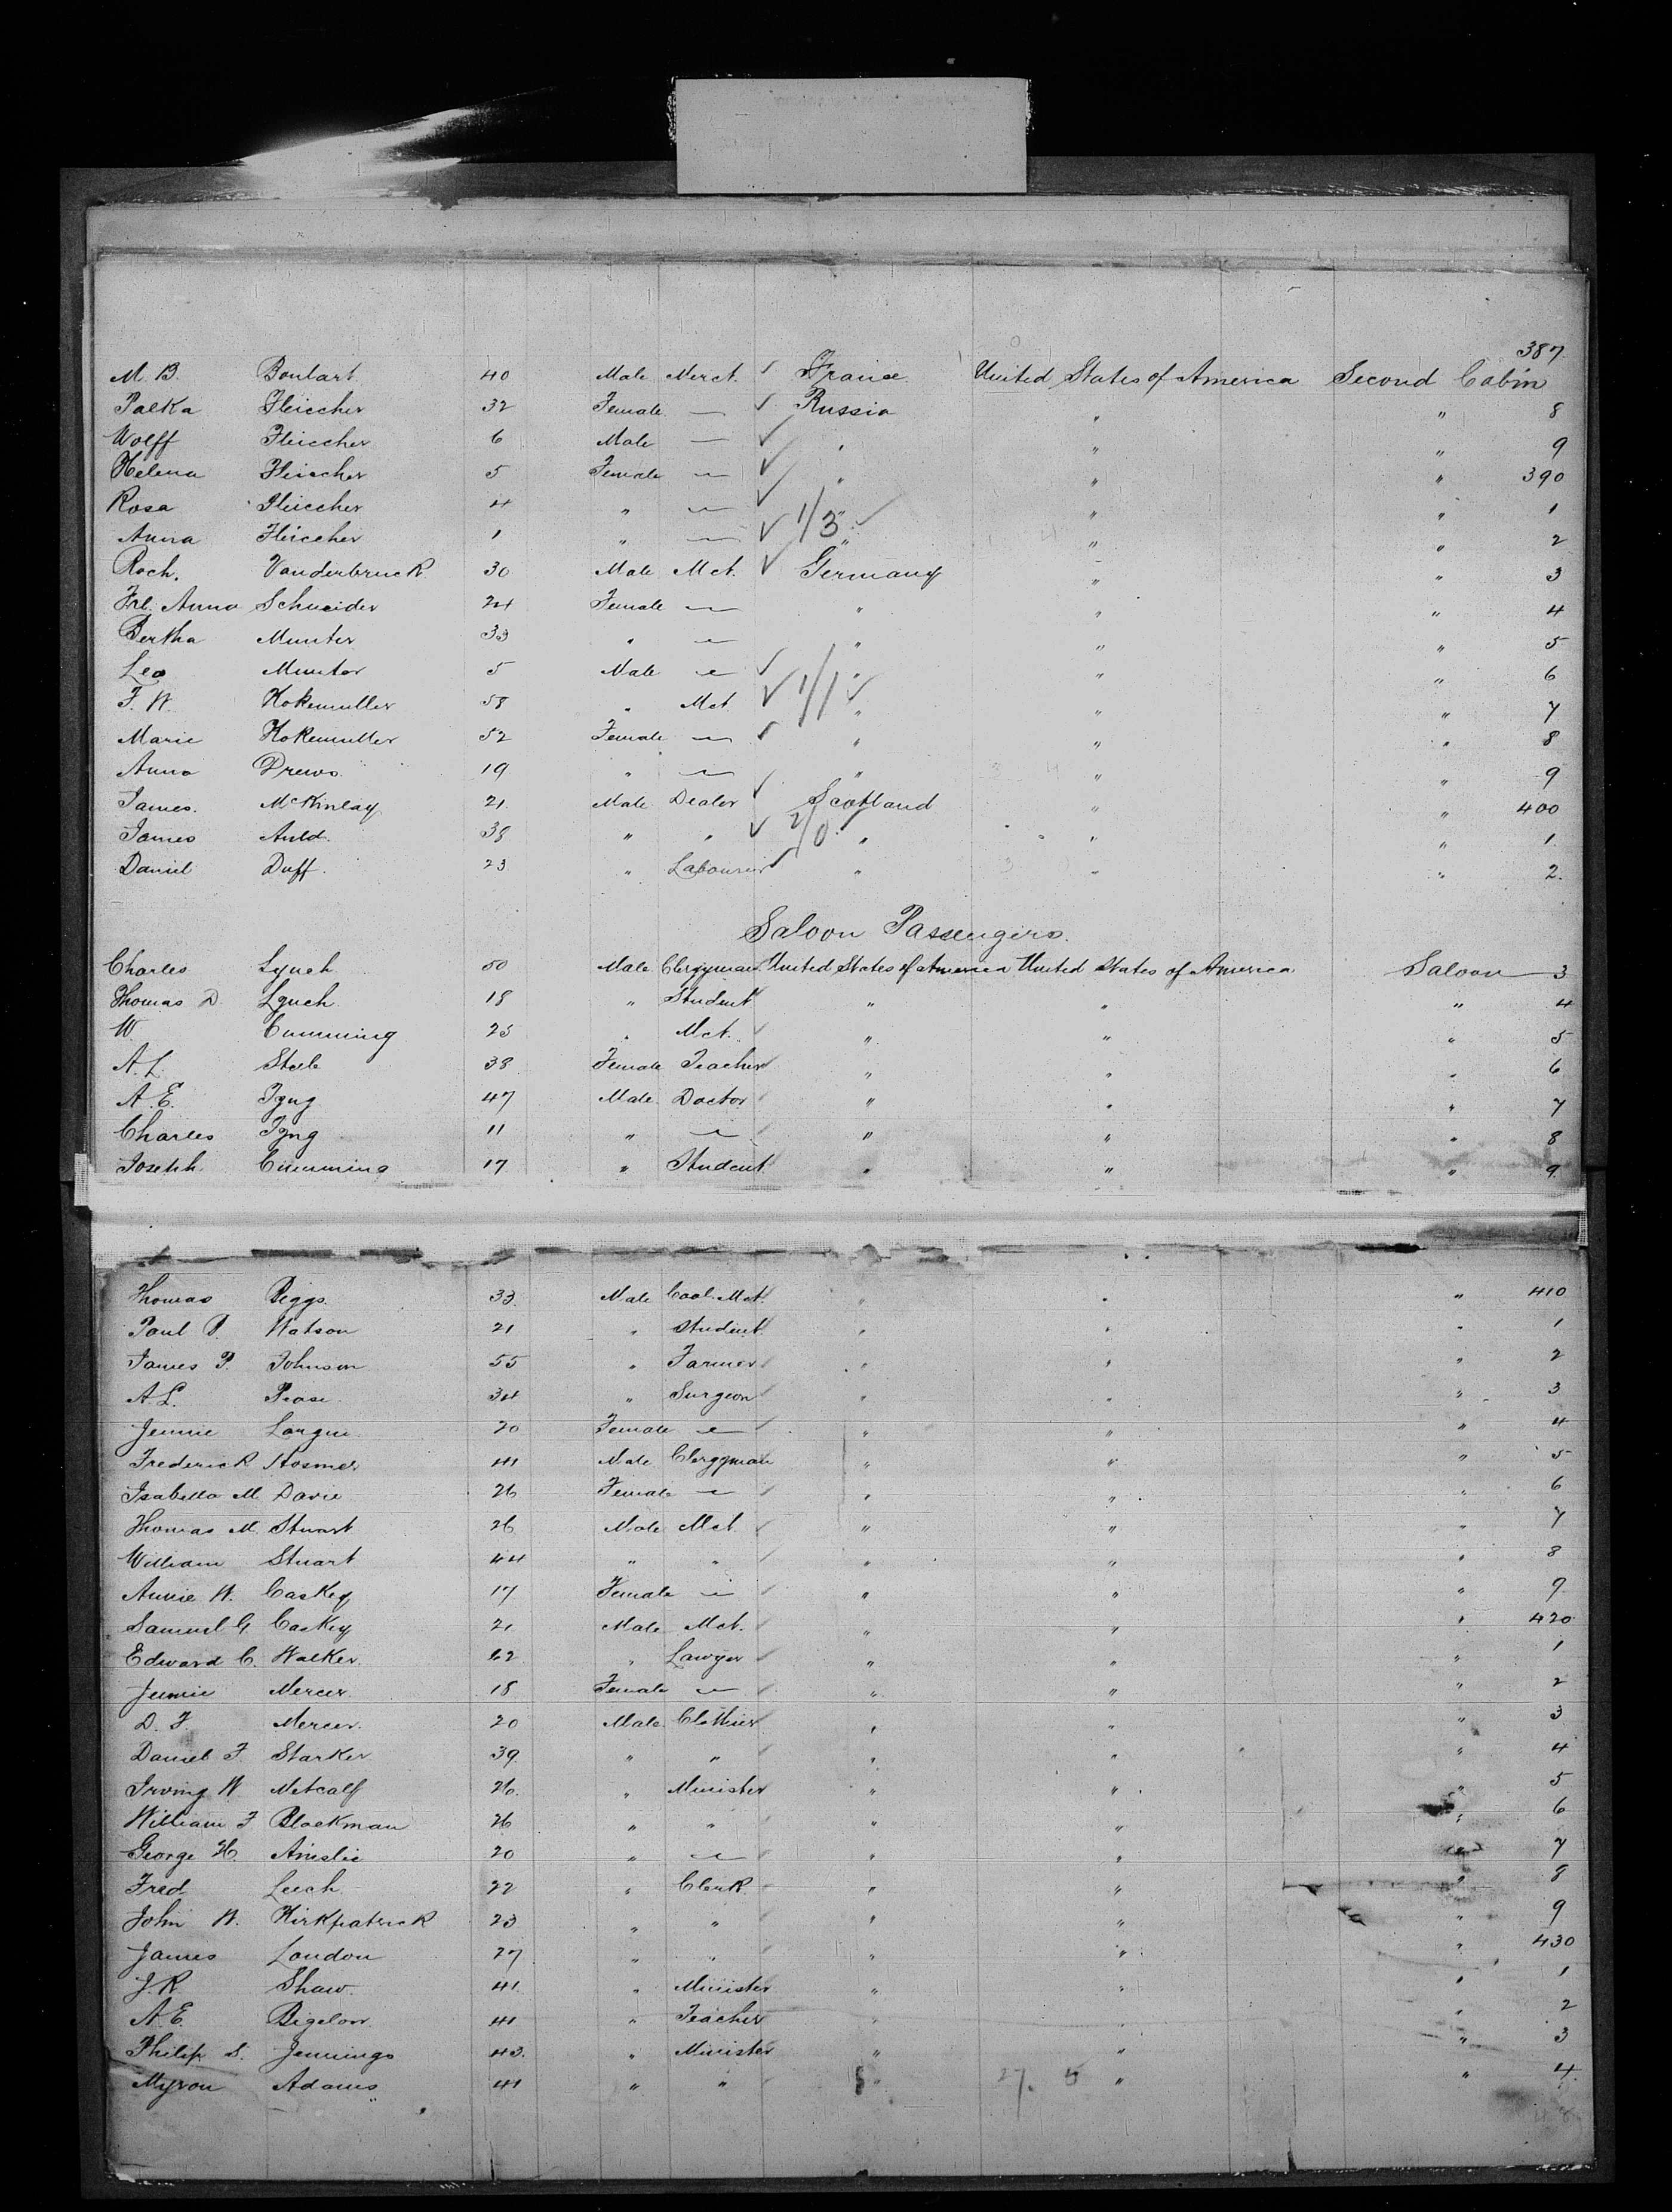 387
M. B. Boulart 40 Male Merct. ✓ France United States of America Second Cabin
Palka Fleischer 32 Female — ✓ Russia " " 8
Wolff Fleischer 6 Male — ✓ " " " 9
Helena Fleischer 5 Female — ✓ " " " 390
Rosa Fleischer 4 " — ✓ " " " 1
1/3 ✓
Anna Fleischer 1 " — ✓ " " " 2
Roch. Vanderbruck 30 Male Mct. ✓ Germany " " 3
Frl. Anna Schneider 24 Female — " " " 4
Bertha Munter 33 " — " " " 5
Leo Munter 5 Male — ✓ " " " 6
1/1 ✓
F. W. Kokemuller 58 " Mct ✓ " " " 7
Marie Kokemuller 52 Female — ✓ " " " 8
Anna Drews 19 " — " " " 9
James. McKinlay 21 Male Dealer ✓ Scotland " " 400
2/0
James Auld. 38 " " ✓ " " " 1.
Daniel Duff. 23 " Labourer ✓ " " " 2.
Saloon Passengers.
Charles Lynch 50 Male Clergyman United States of America United States of America Saloon — 3
Thomas D. Lynch 18 " Student " " " 4
W. Cumming 25 " Mct. ✓ " " " 5
A. L. Steele 38 Female Teacher " " " 6
A. E. Tyng 47 Male Doctor ✓ " " " 7
Charles Tyng 11 " — ✓ " " " 8
Joseph Cumming 17 " Student " " " 9.
Thomas Biggs. 33. Male Coal. Mct. " " " 410
Paul P. Watson 21 " Student " " " 1
James P. Johnson 55 " Farmer ✓ " " " 2
A. L. Pease 34 " Surgeon ✓ " " " 3
Jennie 20 Female — ✓ " " " 4
Frederick Hosmer 41 Male Clergyman " " " 5
Isabella M. Davie 26 Female — ✓ " " " 6
Thomas M. Stuart 26 Male Mct. ✓ " " " 7
William Stuart 44 " " ✓ " " " 8
Annie W. Caskey 17 Female — ✓ " " " 9
Samuel G. Caskey 21 Male Mct. ✓ " " " 420
Edward C. Walker. 62 " Lawyer ✓ " " " 1
Jennie Mercer. 18 Female — ✓ " " " 2
D. F. Mercer. 20 Male Clothier " " " 3
Daniel F. Starker 39 " " ✓ " " " 4
Irving W. Metcalf 26. " Minister " " " 5
William F Blackman 26 " " ✓ " " " 6
George H. Ainslie 20 " — ✓ " " " 7
Fred. Leech 22 " Clerk " " " 8
John W. Kirkpatrick 23 " " ✓ " " " 9
James Landon 27 " " ✓ " " " 430
J. R. Shaw. 41. " Minister " " " 1
A. E. Bigelow. 41 " Teacher " " " 2
Philip S. Jennings 43. " Minister " " " 3
Myron Adams 41 " " ✓ " 27. " " 4.